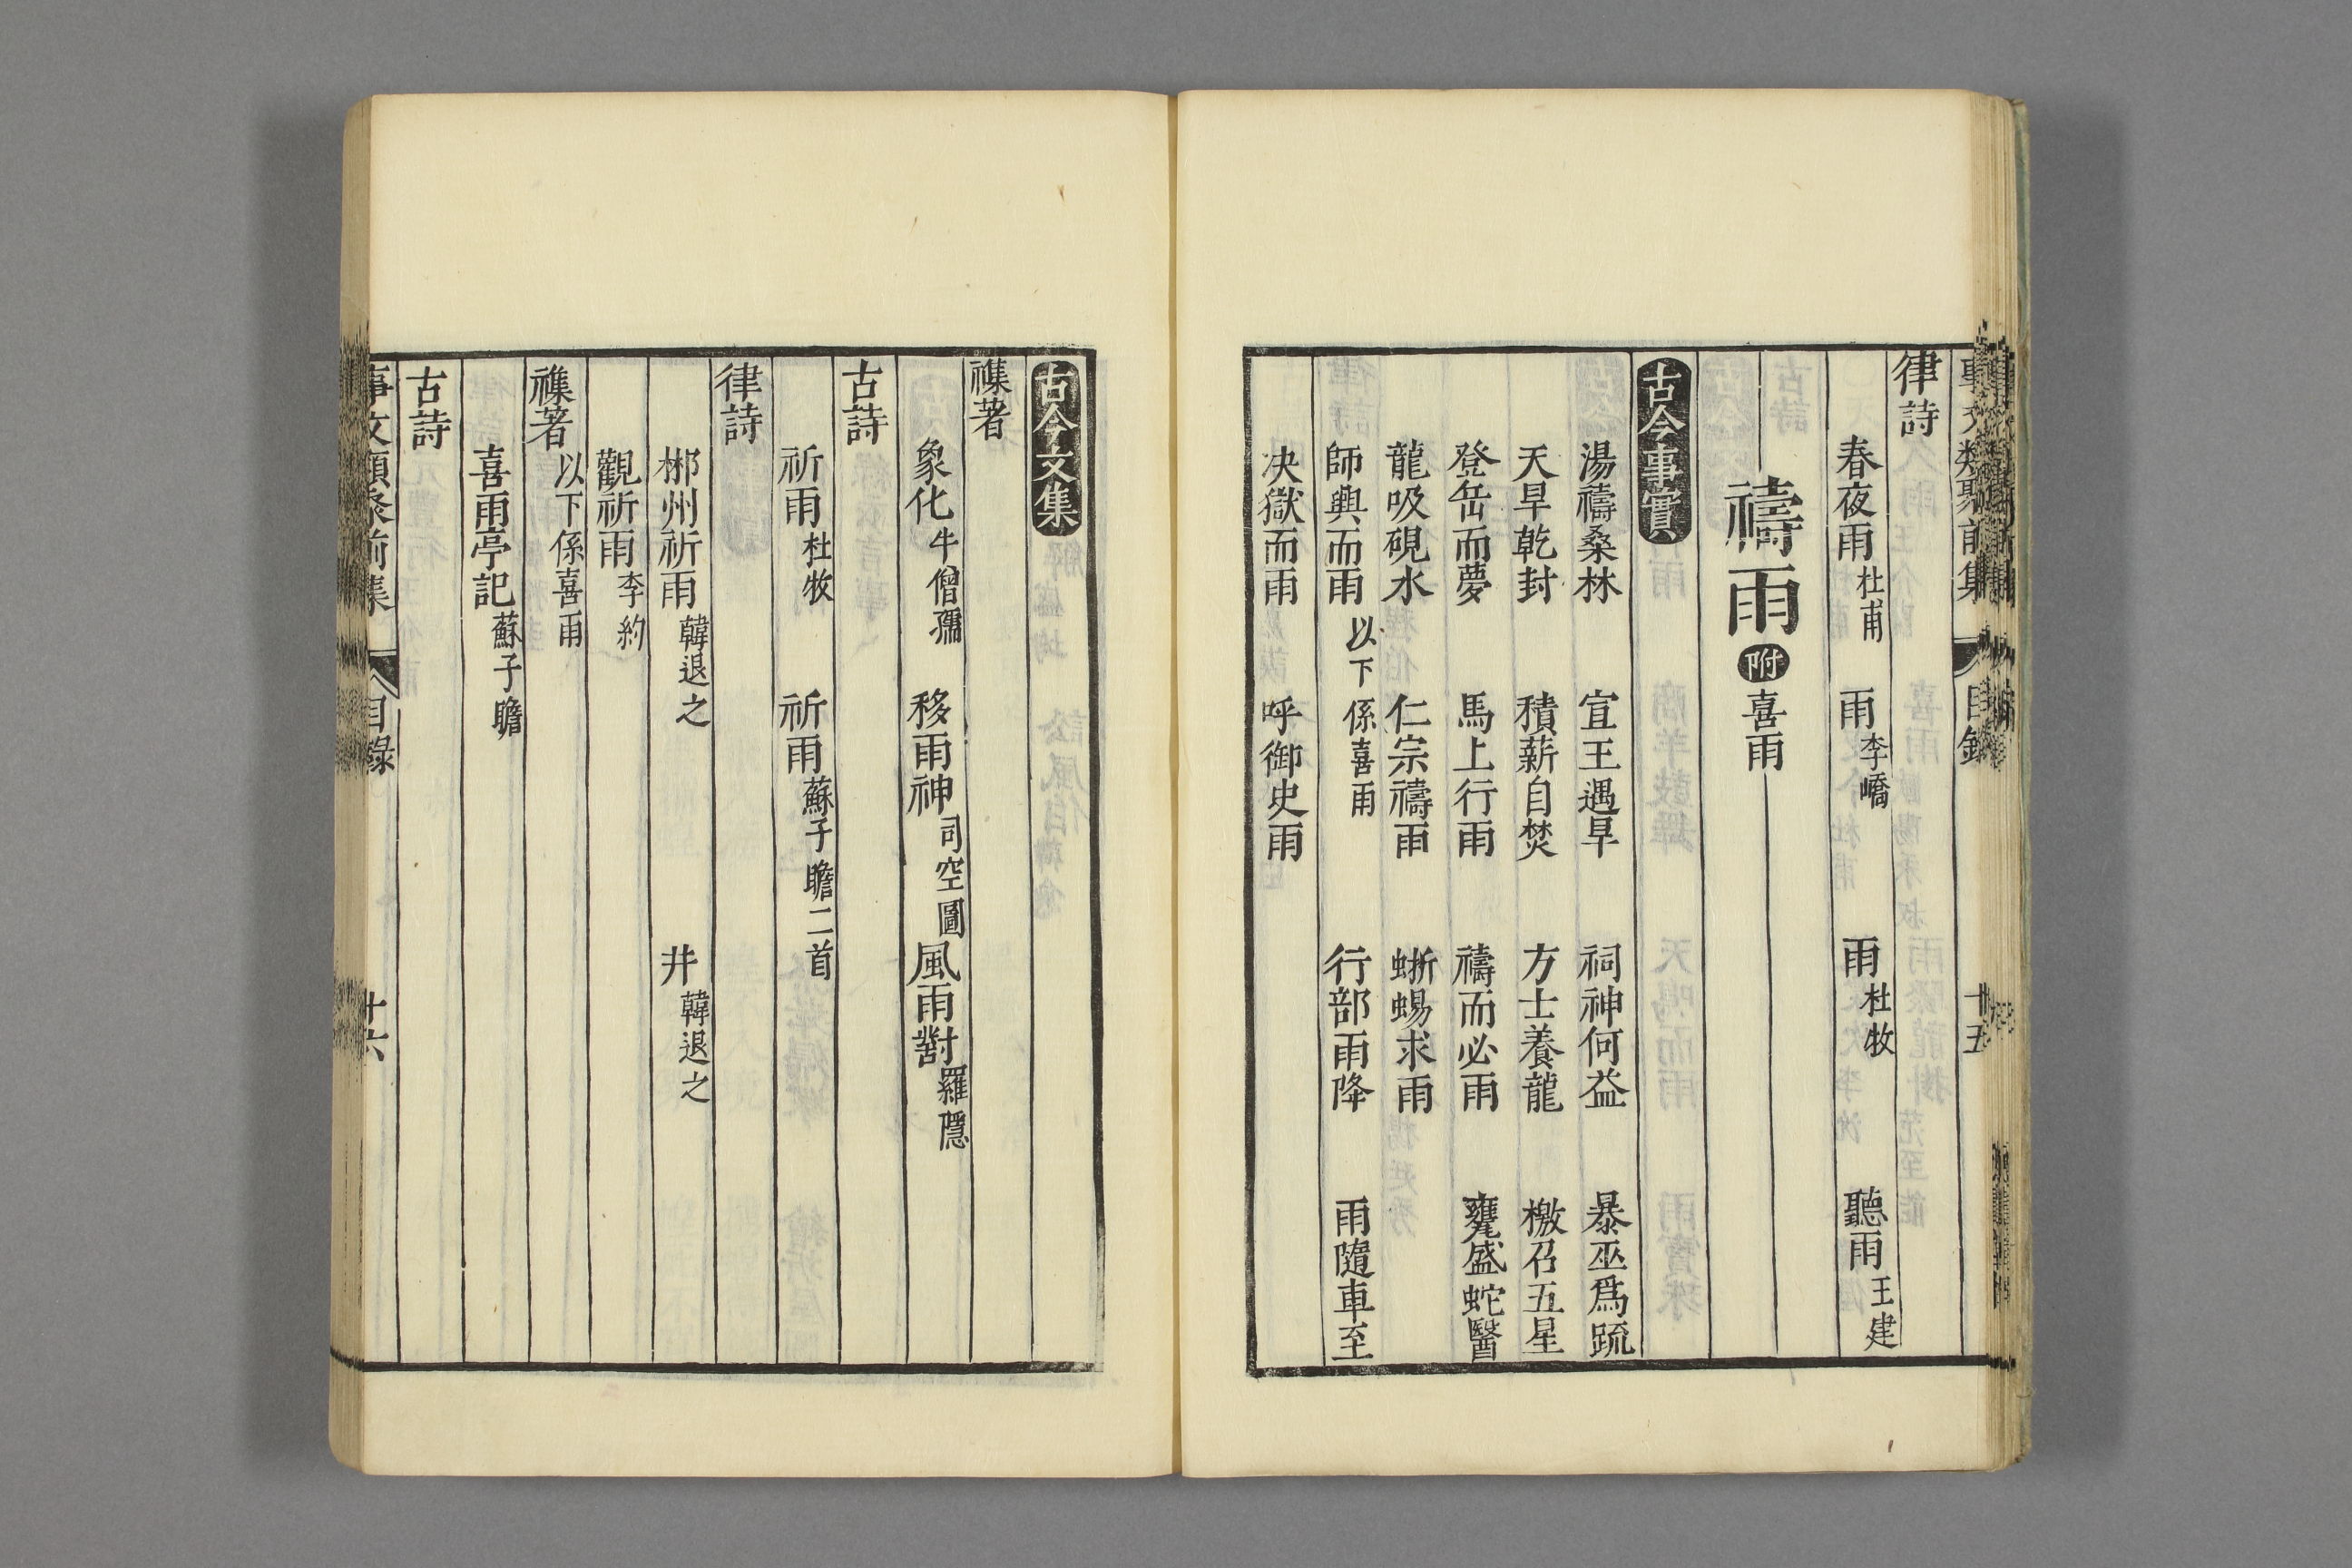 事文類聚前集 目錄 十五
律詩
春夜雨 杜甫 雨 李嶠 雨 杜牧 聽雨 王建
禱雨 附 喜雨
古今事實
湯禱桑林 宣王遇旱 祠神何益 暴巫爲䟽
天旱乾封 積薪自焚 方士養龍 檄召五星
登岳而夢 馬上行雨 禱而必雨 甕盛蛇醫
龍吸硯水 仁宗禱雨 蜥蜴求雨
師興而雨 以下係喜雨 行部雨降 雨隨車至
决獄而雨 呼御史雨
古今文集
襍著
象化 牛僧孺 移雨神 司空圖 風雨對 羅隱
古詩
祈雨 杜牧 祈雨 蘇子瞻二首
律詩
郴州祈雨 韓退之 井 韓退之
觀祈雨 李約
襍著 以下係喜雨
喜雨亭記 蘇子瞻
古詩
事文類聚前集 目錄 十六